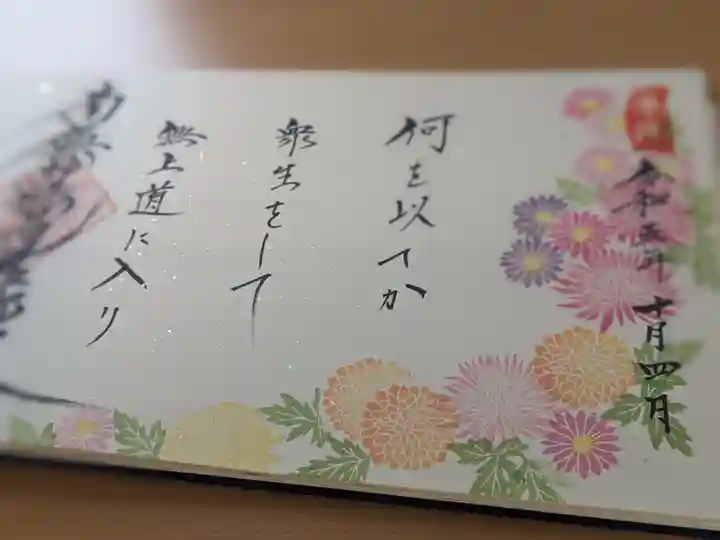 令和五年十月四日
何を以てか
衆生をして
無上道に入り